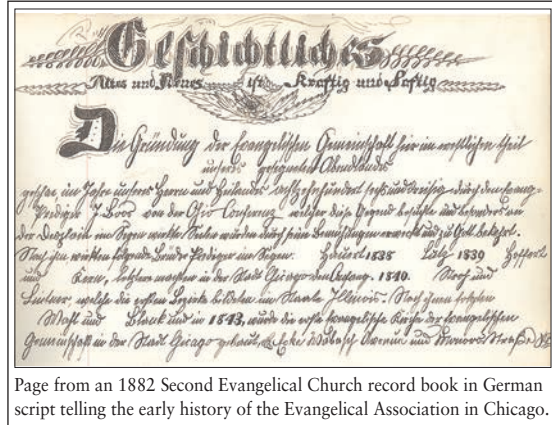 Geschichtliches
Altes und Neues ist Kräftig und Saftig
Die Gründung der Evangelischen Gemeinschaft hier im westlichen theil
unseres gesegneten Abendlandes
geschae im Jahre unseres Herrn und Heilandes achtzehnhundert sechs und dreisig durch den Evang-
Prediger J. Boos von der Ohio Conferenz welcher diese Gegend besuchte und besonders an
der Desplain im Segen wirkte. Viele wurden durch seine Bemühungen erweckt und zu Gott bekehrt.
Nach ihm wirkten folgende Brüder Prediger im Segen. Hauert 1838 Lutz 1839 Hoffert
und Kern, letztere machten in der Stadt Chicago den Anfang. 1840. Stroh und
Lintner, welche die ersten Bezirke bildeten im Staate Illinois. Nach ihnen folgten
Wahl und Blank und in 1843, wurde die erste Evangelische Kirche der Evangelischen
Gemeinschaft in der Stadt Chicago gebaut, Ecke Wabasch Avenue und Monroe Straße
Page from an 1882 Second Evangelical Church record book in German
script telling the early history of the Evangelical Association in Chicago.